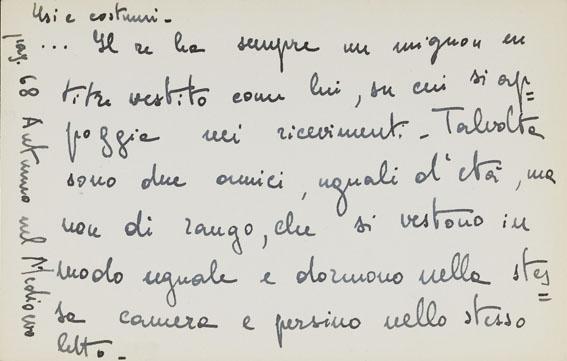 Usi e costumi -
... Il re ha sempre un mignon en
titre vestito come lui, su cui si ap=
poggia nei ricevimenti. - Talvolta
sono due amici, uguali d'età, ma
non di rango, che si vestono in
modo uguale e dormono nella stes=
sa camera e persino nello stesso
letto. -
pag. 68 Autunno nel Medioevo